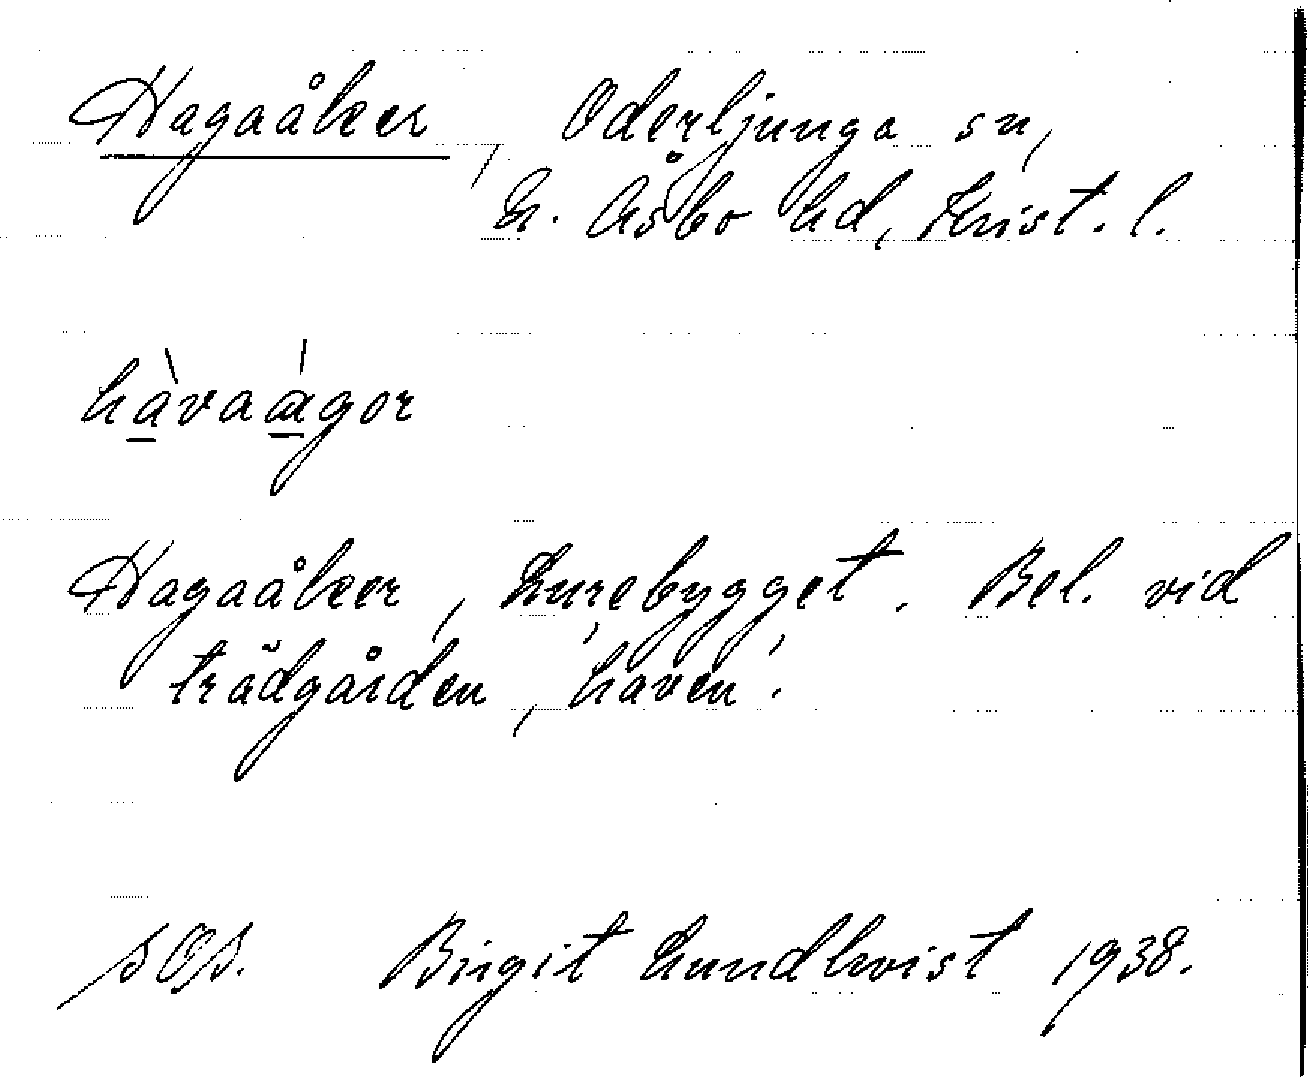 Hagaåker, Oderljunga sn,
N. Åsbo hd, Krist. l.
hàvaágor
Hagaåker, Lurebygget. Bel. vid
trädgården, 'haven'.
SOS. Birgit Lundkvist 1938.